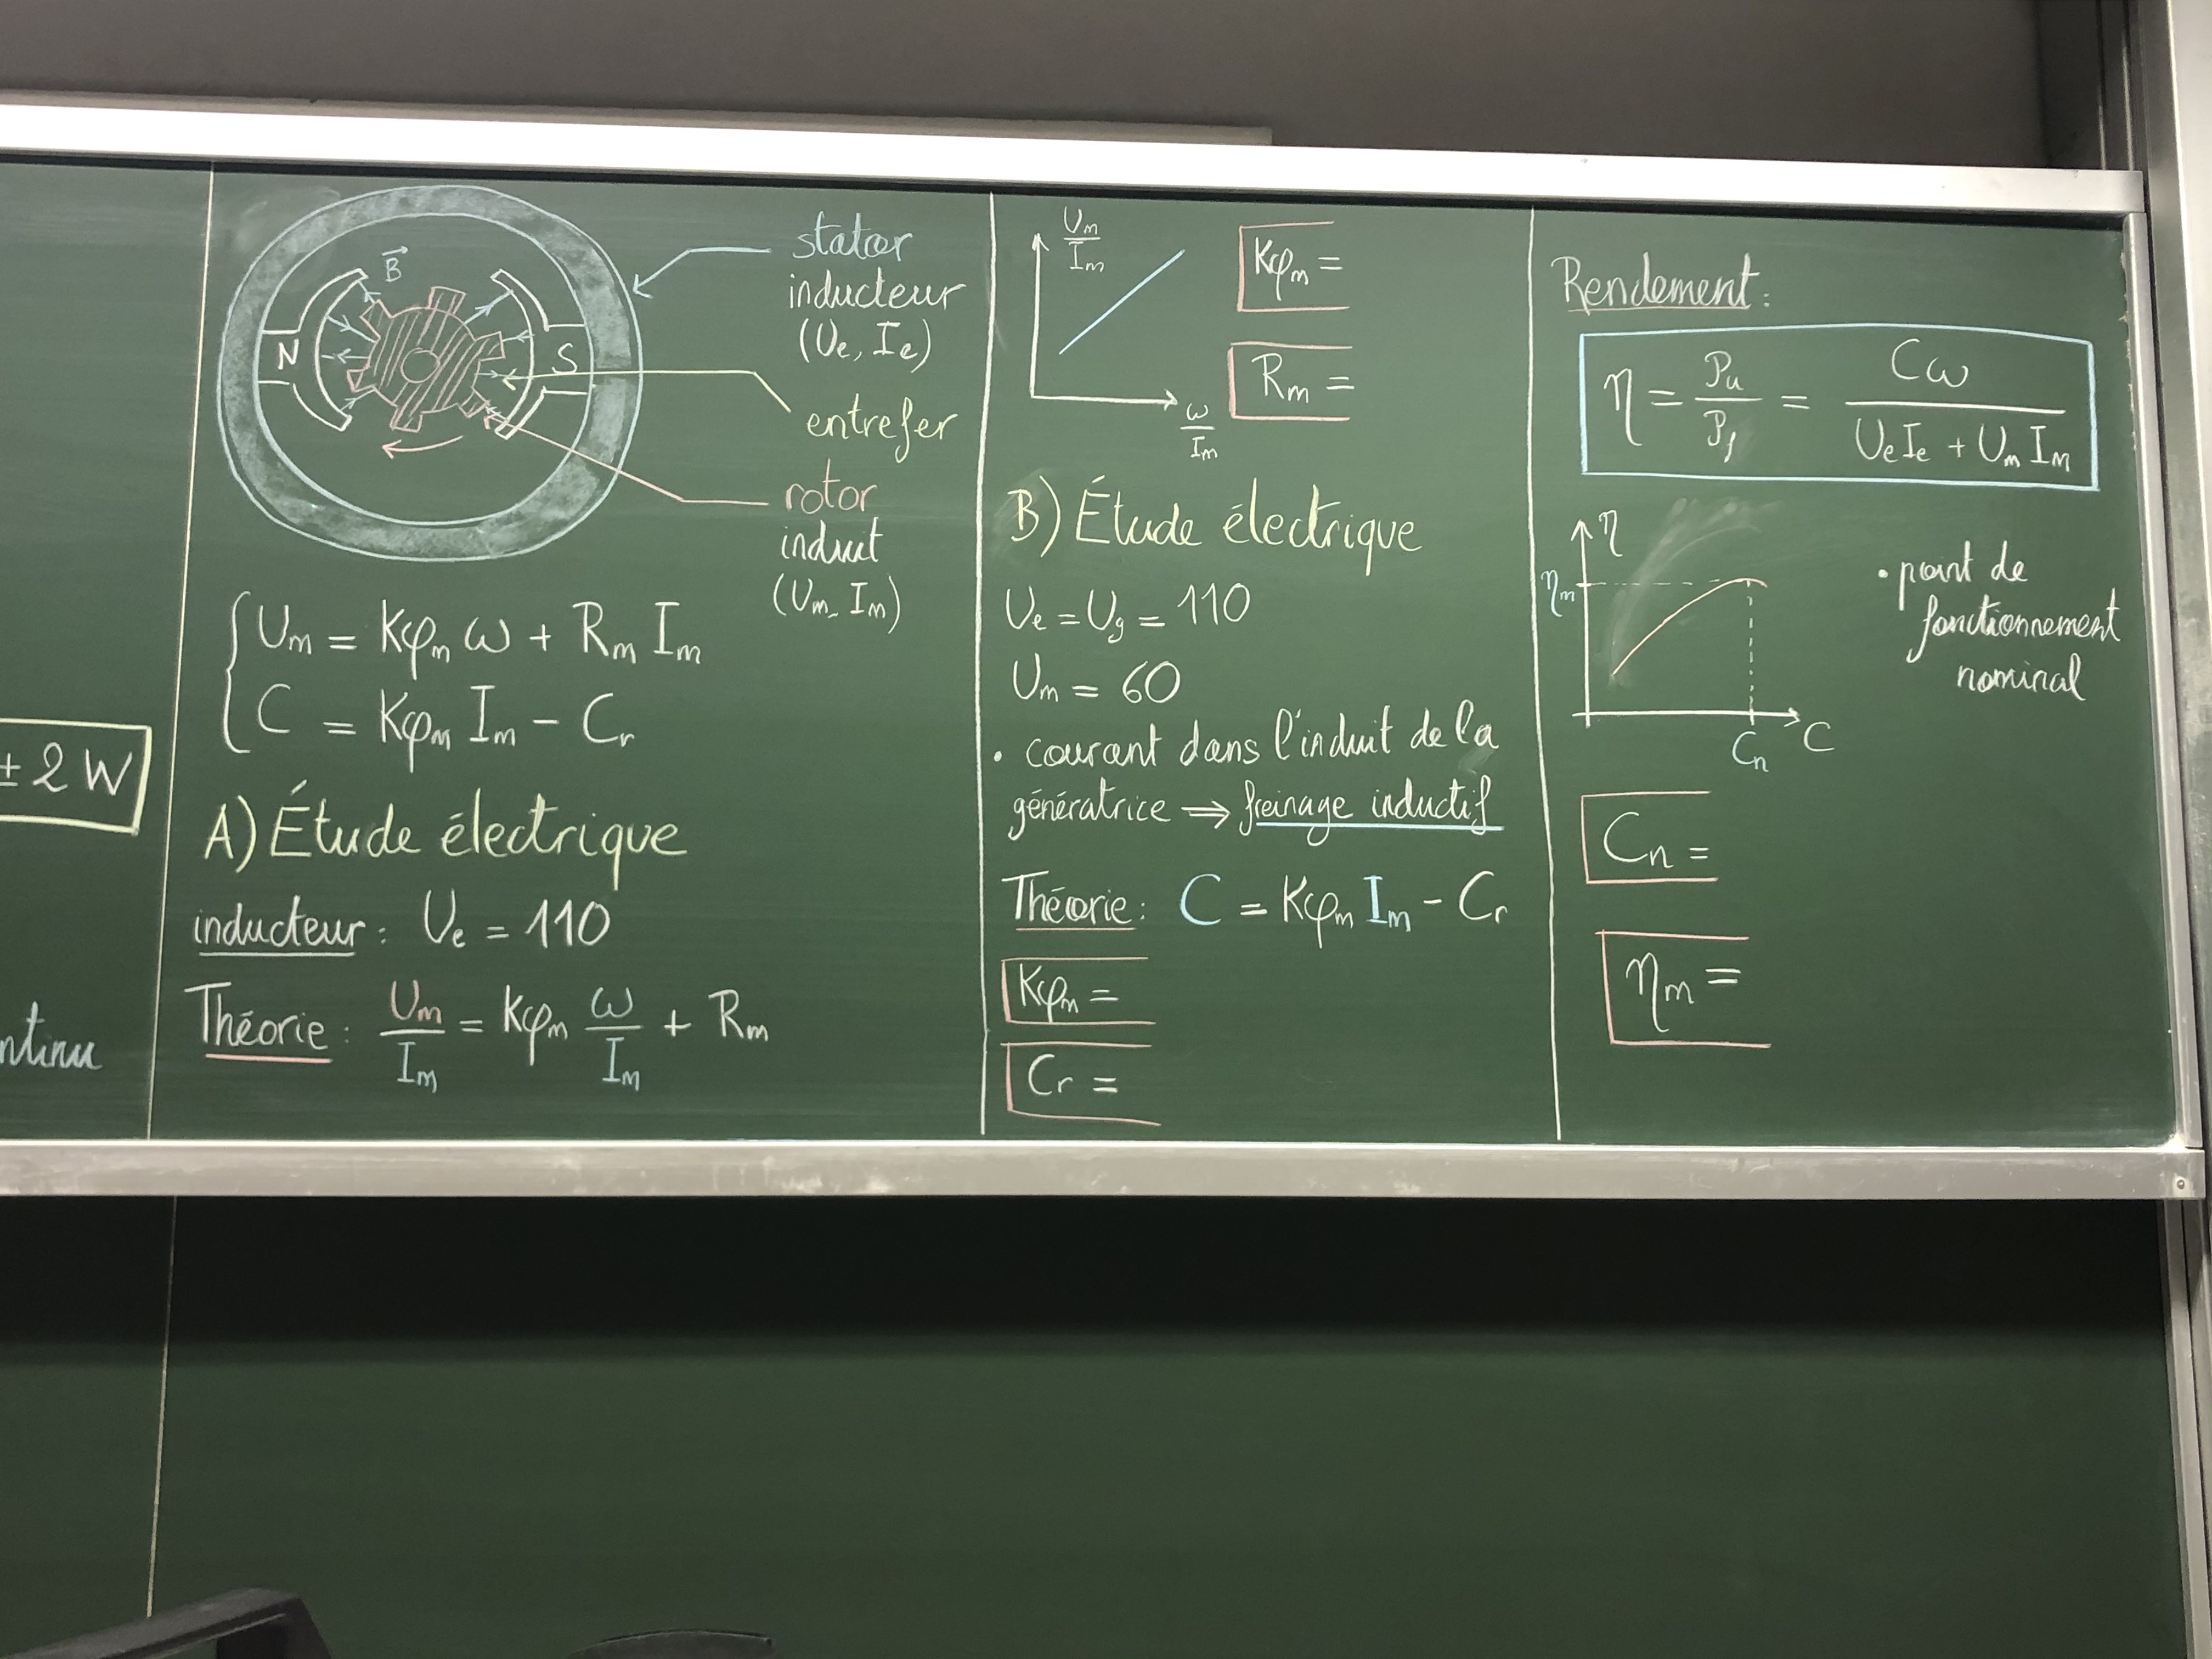 ± 2 W
ntinu
B⃗
N
S
stator
inducteur
(Ue, Ie)
entrefer
rotor
induit
(Um, Im)
Um = Kφm ω + Rm Im
C = Kφm Im - Cr
A) Étude électrique
inducteur : Ue = 110
Théorie : Um/Im = Kφm ω/Im + Rm
Um/Im
ω/Im
Kφm =
Rm =
B) Étude électrique
Ue = Ug = 110
Um = 60
• courant dans l'induit de la
génératrice ⇒ freinage inductif
Théorie : C = Kφm Im - Cr
Kφm =
Cr =
Rendement :
η = Pu/Pf = Cω/(UeIe + Um Im)
η
ηm
Cn
C
• point de
fonctionnement
nominal
Cn =
ηm =